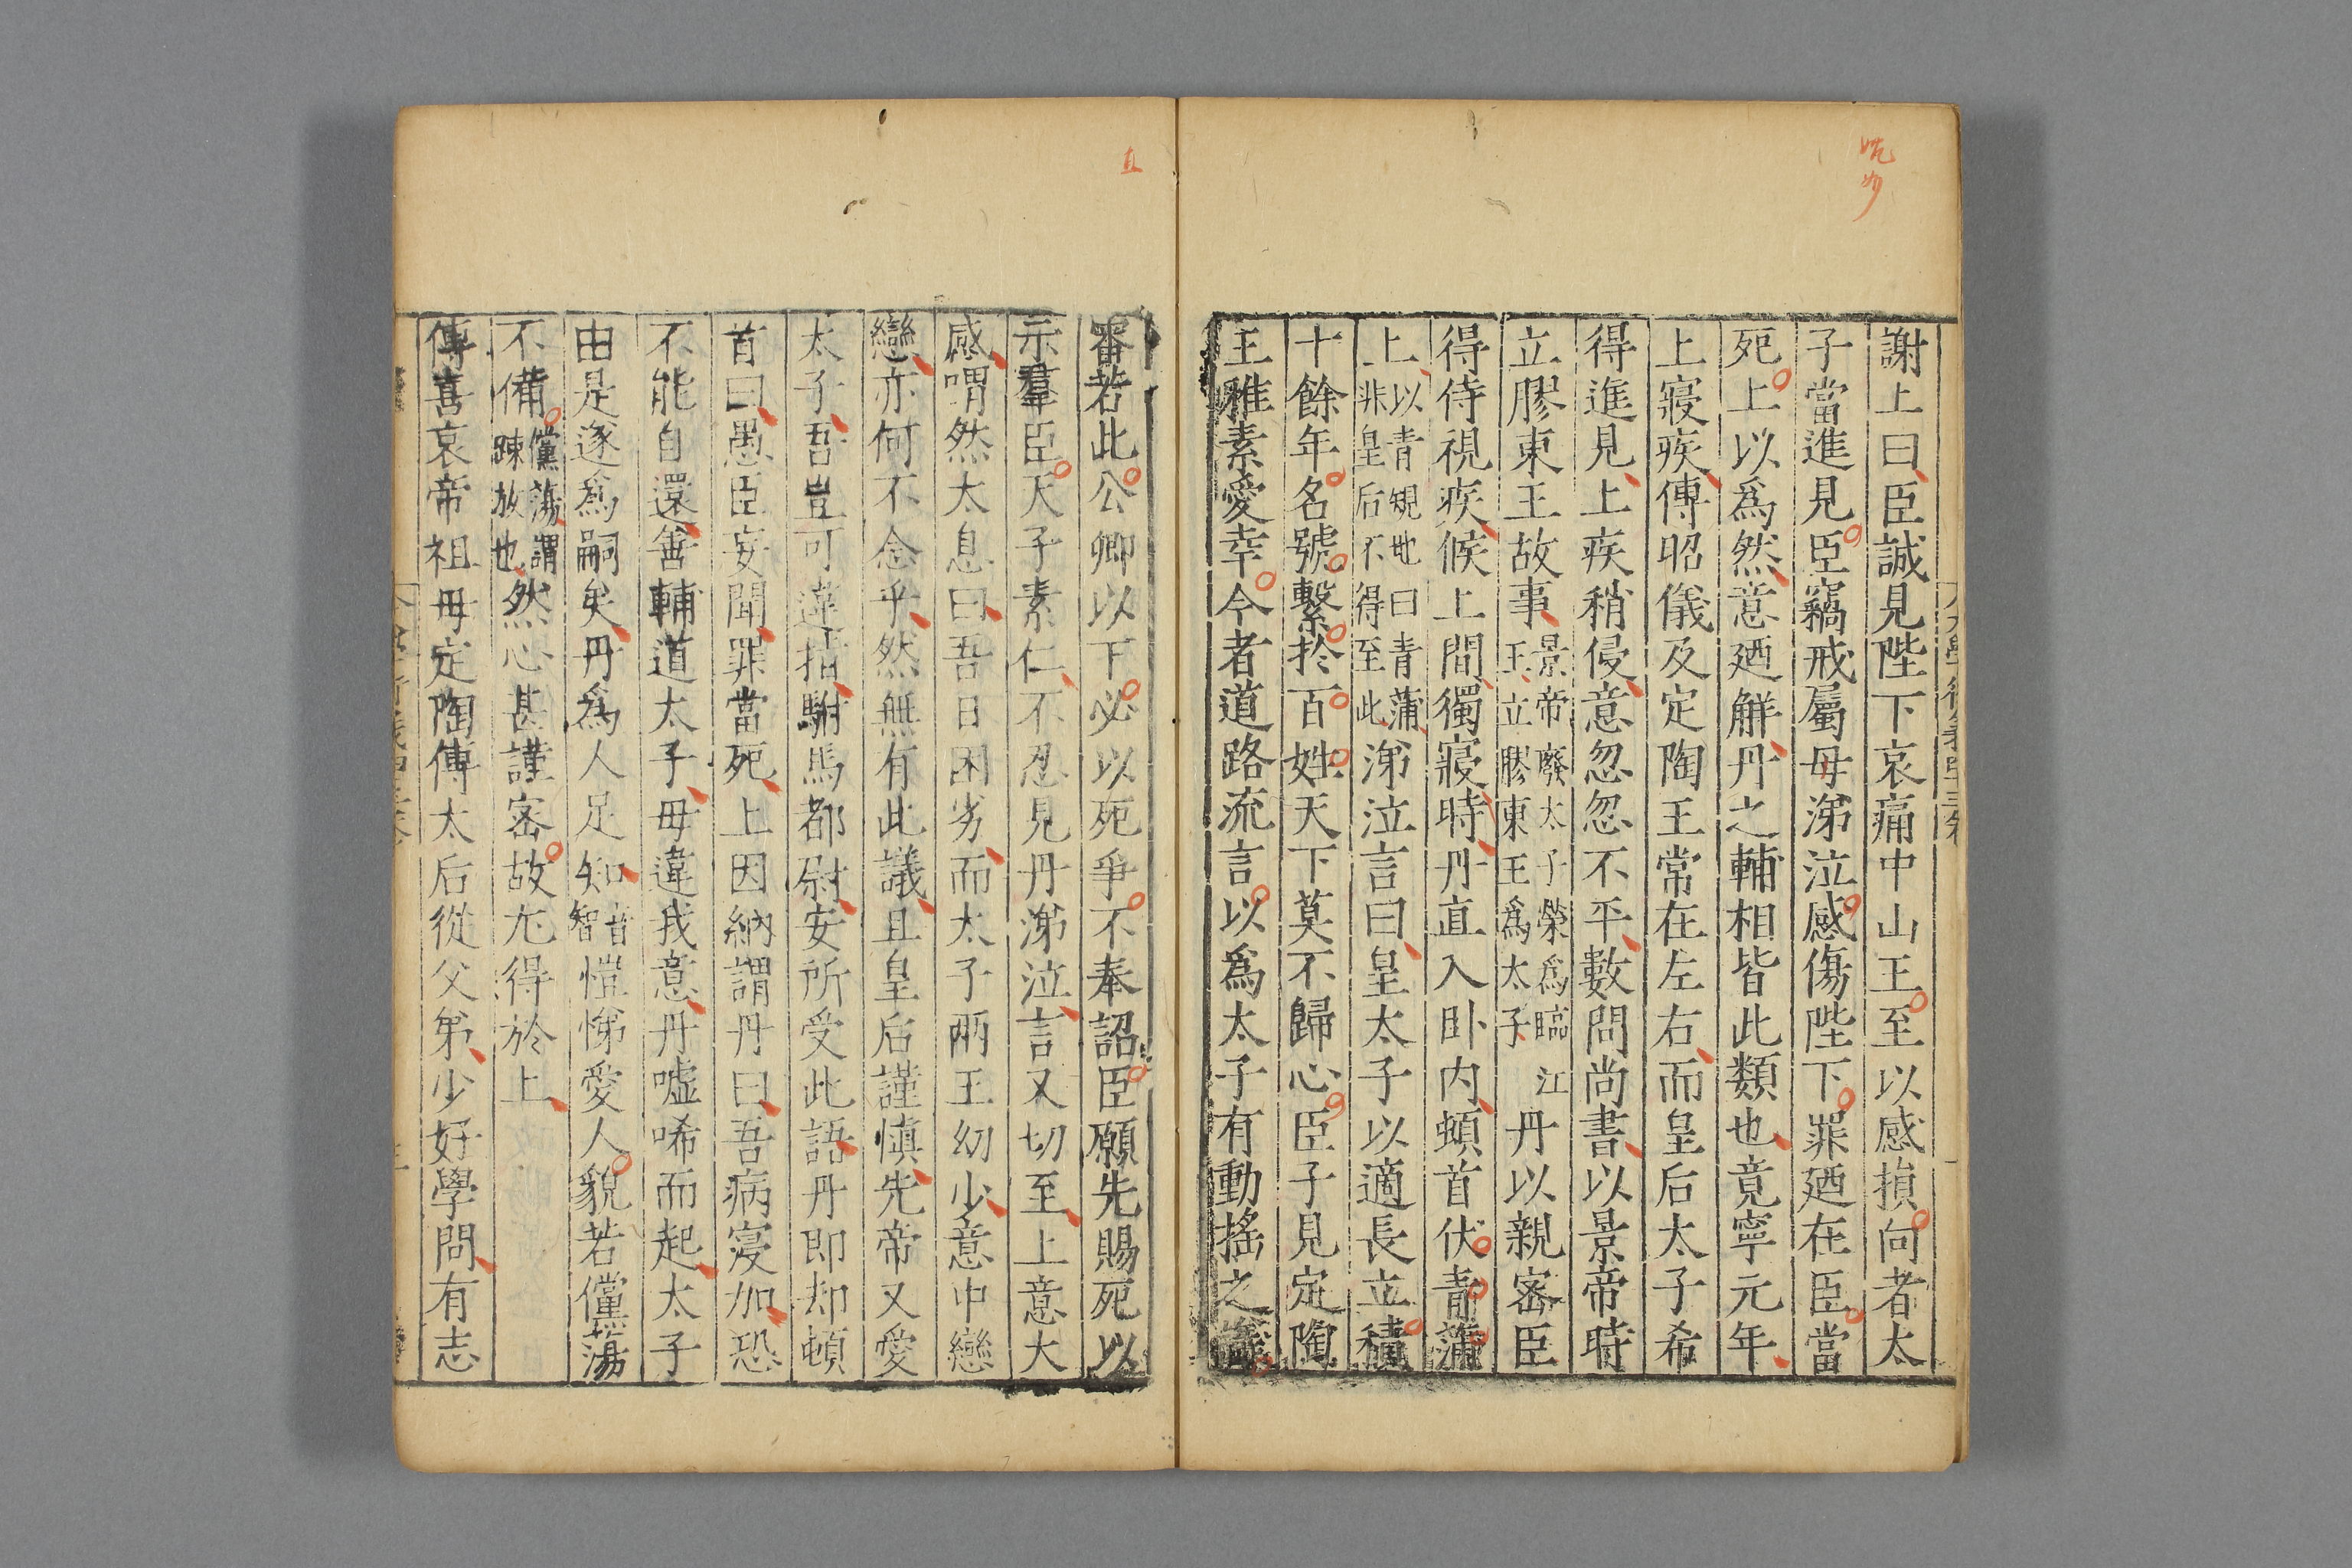 謝上曰臣誠見陛下哀痛中山王至以感損向者太
子當進見臣竊戒屬毋涕泣感傷陛下罪廼在臣當
死上以爲然意廼解丹之輔相皆此類也竟寧元年
上寢疾傅昭儀及定陶王常在左右而皇后太子希
得進見上疾稍侵意忽忽不平數問尚書以景帝時
立膠東王故事景帝廢太子榮爲臨江王立膠東王爲太子丹以親密臣
得侍視疾候上間獨寢時丹直入卧内頓首伏青蒲
上以青規地曰青蒲非皇后不得至此涕泣言曰皇太子以適長立積
十餘年名號繫於百姓天下莫不歸心臣子見定陶
王雅素愛幸今者道路流言以爲太子有動搖之議
審若此公卿以下必以死爭不奉詔臣願先賜死以
示羣臣天子素仁不忍見丹涕泣言又切至上意大
感喟然太息曰吾日困劣而太子兩王幼少意中戀
戀亦何不念乎然無有此議且皇后謹慎先帝又愛
太子吾豈可違指駙馬都尉安所受此語丹即却頓
首曰愚臣妄聞罪當死上因納謂丹曰吾病寖加恐
不能自還善輔道太子毋違我意丹噓唏而起太子
由是遂爲嗣矣丹爲人足知音智愷悌愛人貌若儻蕩
不備儻蕩謂踈放也然心甚謹密故尤得於上
傅喜哀帝祖母定陶傅太后從父弟少好學問有志